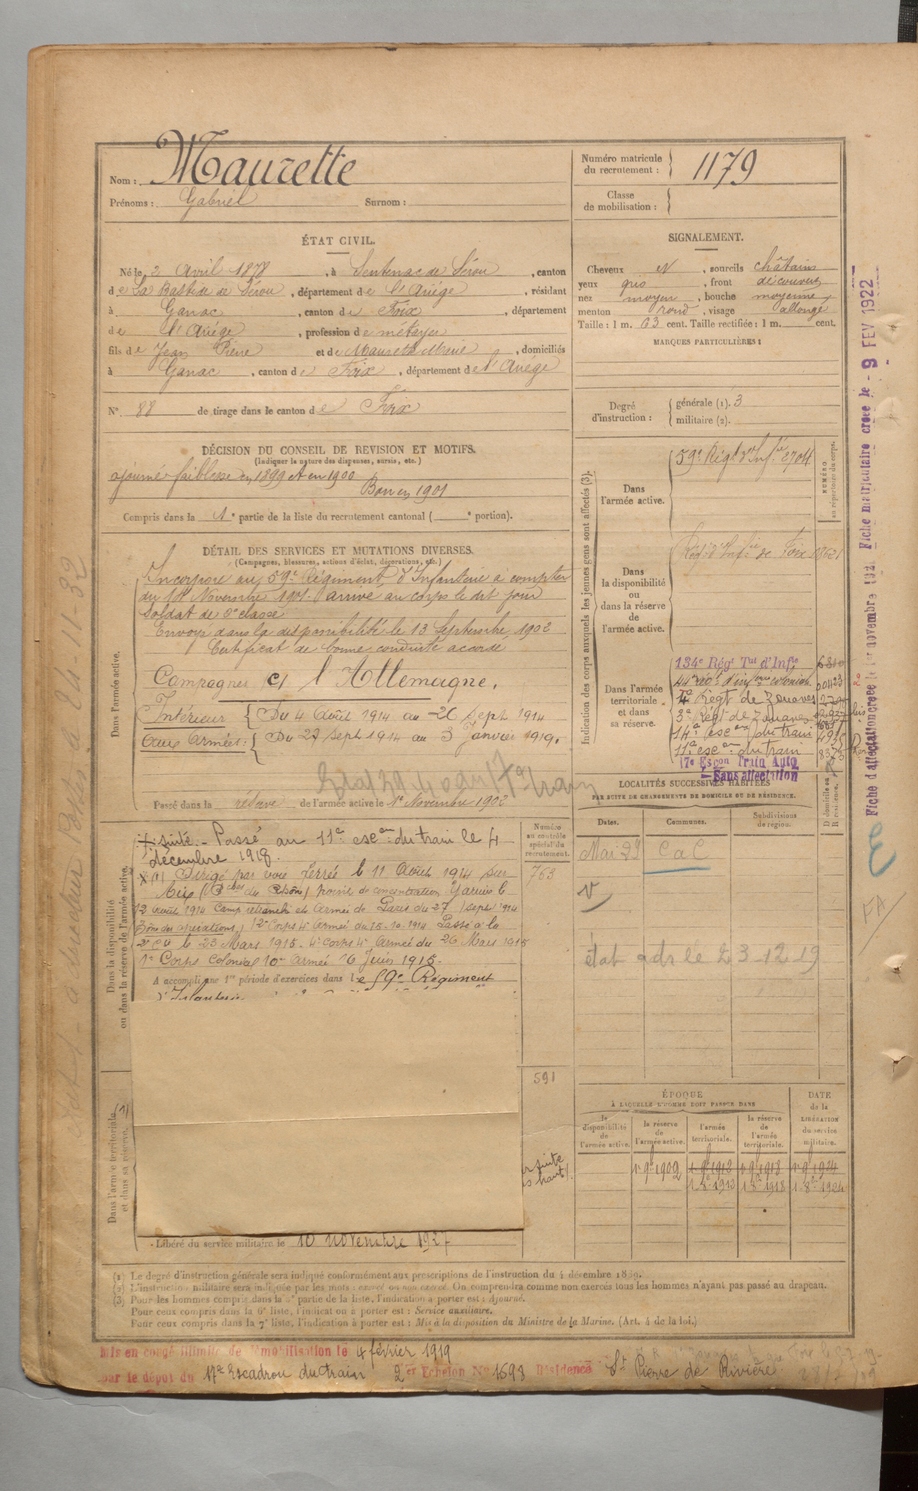 Nom : Maurette
Prénoms : Gabriel Surnom :
Numéro matricule du recrutement : 1179
Classe de mobilisation :
ÉTAT CIVIL.
Né le 2 Avril 1878, à Sentenac de Sérou, canton
de La Bastide de Sérou, département de l'Ariége, résidant
à Ganac, canton de Foix, département
de l'Ariége, profession de métayer
fils de Jean Pierre et de Maurette Marie, domiciliés
à Ganac, canton de Foix, département de l'Ariege
N° 88 de tirage dans le canton de Foix
SIGNALEMENT.
Cheveux N, sourcils châtains
yeux gris, front découvert
nez moyen, bouche moyenne
menton rond, visage allongé
Taille : 1 m. 63 cent. Taille rectifiée : 1 m. cent.
MARQUES PARTICULIÈRES :
Degré d'instruction : générale (1). 3
militaire (2).
DÉCISION DU CONSEIL DE REVISION ET MOTIFS.
(Indiquer la nature des dispenses, sursis, etc.)
ajourné faiblesse en 1899 et en 1900
Bon en 1901
Compris dans la 1e partie de la liste du recrutement cantonal ( e portion).
DÉTAIL DES SERVICES ET MUTATIONS DIVERSES.
(Campagnes, blessures, actions d'éclat, décorations, etc.)
Dans l'armée active.
Incorporé au 59e Régiment d'Infanterie à compter
du 14 Novembre 1901. arrivé au corps le dit jour
Soldat de 2e classe
Envoyé dans la disponibilité le 13 Septembre 1902
Certificat de bonne conduite accordé
Campagnes c/ l'Allemagne.
Intérieur { Du 4 Août 1914 au 26 Sept 1914
Aux Armées : { Du 27 Sept 1914 au 3 Janvier 1919.
Passé dans la réserve de l'armée active le 1er Novembre 1902
Dans la disponibilité ou dans la réserve de l'armée active.
suite. - Passé au 11e escon du train le 4
décembre 1918.
(1) Dirigé par voie ferrée le 11 Août 1914 sur
Aix (Bches du Rhône) point de concentration Y arrivé le
12 août 1914 Camp retranché et Armée de Paris du 27 sept 1914
12e Corps 4e Armée du 15-10-1914 Passé à la
le 23 Mars 1915. 4e Corps 4e Armée du 26 Mars 1915
1er Corps Colonial 10e Armée 16 Juin 1915.
A accompli une 1re période d'exercices dans le 59e Régiment
d'Infanterie
Numéro au contrôle spécial du recrutement.
763
591
Dans l'armée territoriale et dans sa réserve.
Libéré du service militaire le 10 novembre 1927
Indication des corps auxquels les jeunes gens sont affectés (3).
NUMÉRO au répertoire du corps.
Dans l'armée active.
59e Régt d'Infie 2704
Dans la disponibilité ou dans la réserve de l'armée active.
Régt d'Infie de Foix
Dans l'armée territoriale et dans sa réserve.
134e Régt Tal d'Infie
44e Régt d'Infie coloniale
Régt de Zouaves
3e Régt de Zouaves
14e escon du train
11e escon du train
17e Escon Train Auto
Sans affectation
LOCALITÉS SUCCESSIVES HABITÉES
PAR SUITE DE CHANGEMENTS DE DOMICILE OU DE RÉSIDENCE.
Dates. Communes. Subdivisions de région. D domicile ou R résidence.
Mai 29 CaC
V
état adr le 23-12-19
ÉPOQUE
À LAQUELLE L'HOMME DOIT PASSER DANS
DATE de la LIBÉRATION du service militaire.
la disponibilité de l'armée active. la réserve de l'armée active. l'armée territoriale. la réserve de l'armée territoriale.
1 9bre 1902 1 9bre 1912 1 9bre 1918 1 9bre 1924
1 8bre 1912 1 8bre 1918 1 8bre 1924
(1) Le degré d'instruction générale sera indiqué conformément aux prescriptions de l'instruction du 4 décembre 1889.
(2) L'instruction militaire sera indiquée par les mots : exercé ou non exercé. On comprendra comme non exercés tous les hommes n'ayant pas passé au drapeau.
(3) Pour les hommes compris dans la 2e partie de la liste, l'indication à porter est : Ajourné.
Pour ceux compris dans la 6e liste, l'indication à porter est : Service auxiliaire.
Pour ceux compris dans la 7e liste, l'indication à porter est : Mis à la disposition du Ministre de la Marine. (Art. 4 de la loi.)
Mis en congé illimité de démobilisation le 4 février 1919
par le dépôt du 17e Escadron du train 2er Echelon No 1593 Résidence St Pierre de Rivière
Fiche matriculaire créée le - 9 FEV 1922